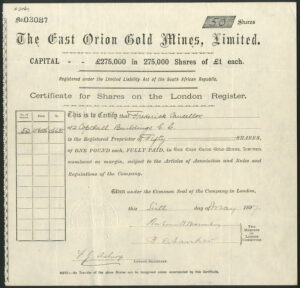 No 03087
50 Shares
The East Orion Gold Mines, Limited.
CAPITAL - - £275,000 in 275,000 Shares of £1 each.
Registered under the Limited Liability Act of the South African Republic.
Certificate for Shares on the London Register.
This is to Certify that Frederick
42 Copthall Buildings E. C.
is the Registered Proprietor of Fifty SHARES,
of ONE POUND each, FULLY PAID, in THE EAST ORION GOLD MINES, LIMITED,
numbered as margin, subject to the Articles of Association and Rules and
Regulations of the Company.
50
Given under the Common Seal of the Company in London,
this Sixth day of May 189
Two
Members
of
London
Committee
London Secretary
NOTE:—No Transfer of the above Shares can be recognised unless accompanied by this Certificate.